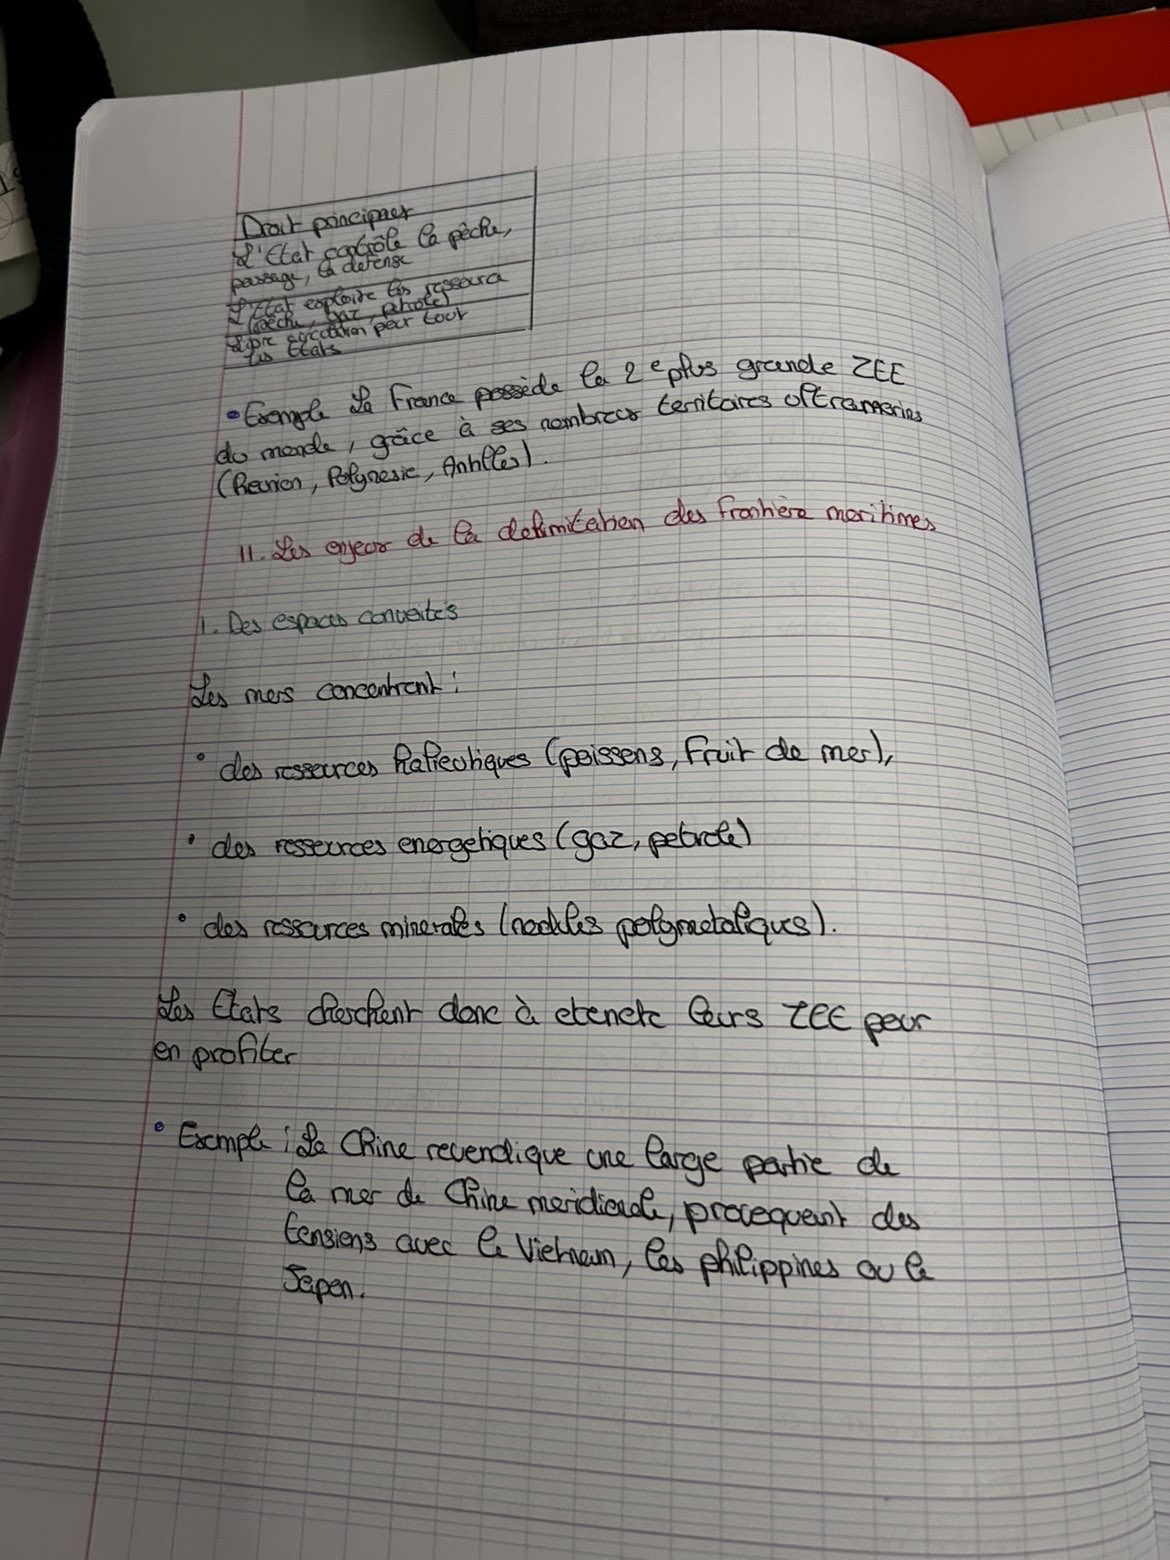 Droit principaux
L'Etat contrôle la pêche,
passage, la defense
L'Etat exploite les ressource
(pêche, gaz, petrole)
Libre circulation pour tout
les Etats
• Exemple La France possède la 2e plus grande ZEE
du monde, grâce à ses nombreux territoires oltrameries
(Reunion, Polynesie, Antilles).
II. Les enjeux de la delimitation des frontière maritimes
1. Des espaces convoités
Les mers concentrent :
• des ressources halieutiques (poissons, Fruit de mer),
• des ressources energetiques (gaz, petrole)
• des ressources minerales (nodules polymetaliques).
Les Etats cherchent donc à etendre leurs ZEE pour
en profiter
• Exemple : La Chine revendique une large partie de
la mer de Chine meridionale, provoquant des
tensions avec le Vietnam, les philippines ou le
Japon.